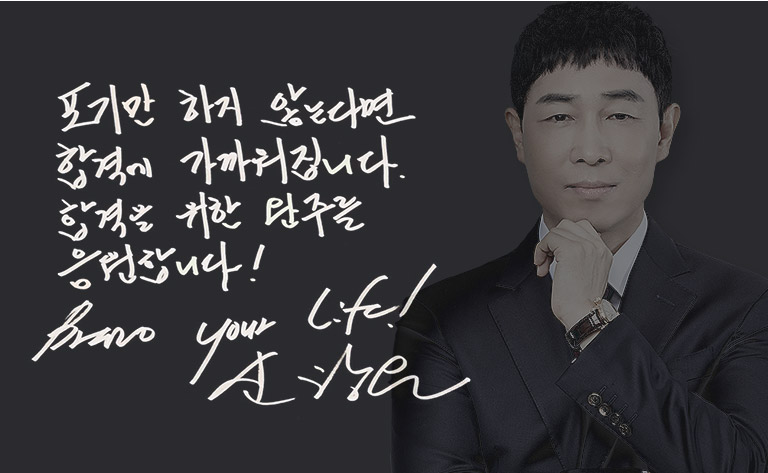 포기만 하지 않는다면
합격에 가까워집니다.
합격을 위한 완주를
응원합니다!
Bravo your Life!